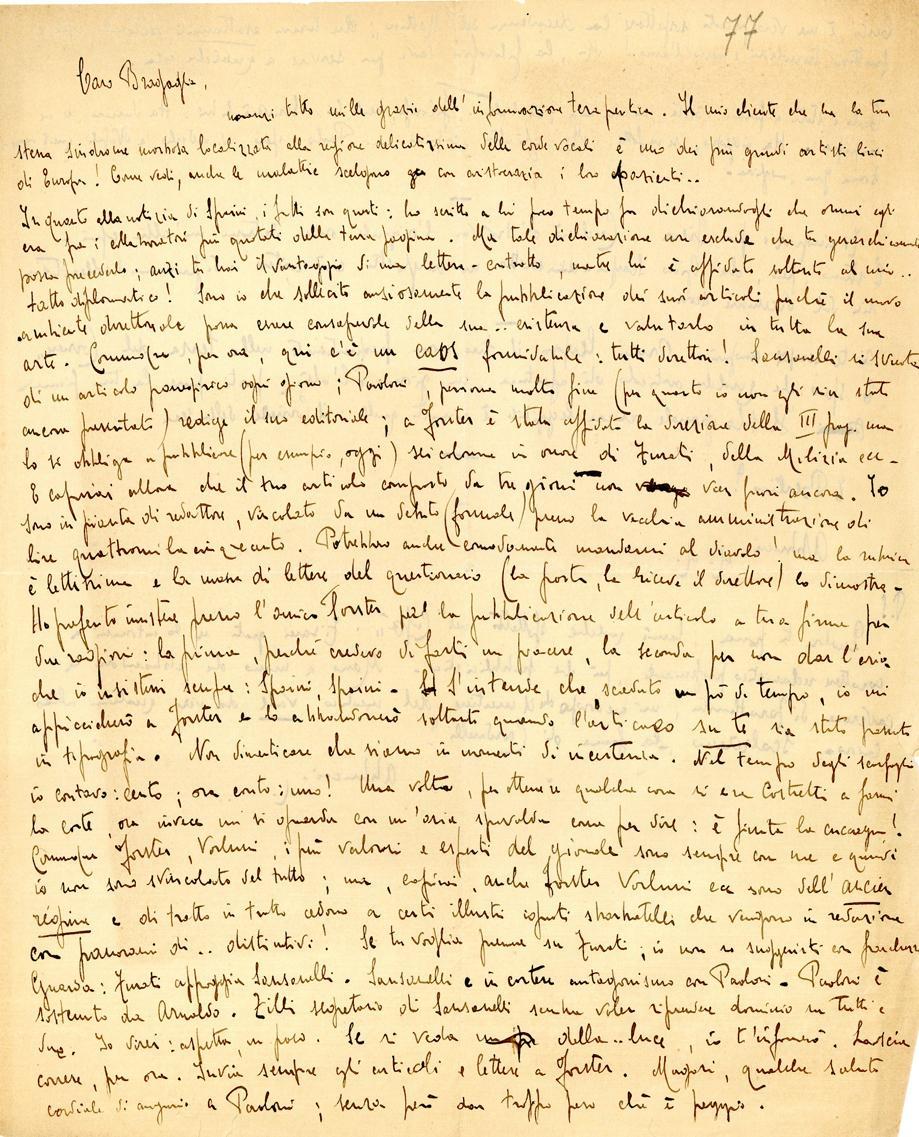 77
Caro Bragaglia,
innanzi tutto mille grazie dell'informazione terapeutica. Il mio cliente che ha la tua
stessa sindrome morbosa localizzata alla regione delicatissima delle corde vocali è uno dei più grandi artisti lirici
di Europa! Come vedi, anche le malattie scelgono con aristocrazia i loro pazienti..
In quanto alla notizia di Sparini, i fatti son questi: ho scritto a lui poco tempo fa dichiarandogli che ormai egli
era fra i collaboratori più quotati della terza pagina. Ma tale dichiarazione non esclude che tu gerarchicamente
possa precederlo; anzi tu hai il vantaggio di una lettera-contratto, mentre lui è affidato soltanto al mio..
tatto diplomatico! Sono io che sollecito ansiosamente la pubblicazione dei suoi articoli perchè il nuovo
ambiente direttoriale possa essere consapevole della sua.. esistenza e valutarlo in tutta la sua
arte. Comunque, per ora, qui c'è un caos formidabile: tutti direttori! Sansanelli si
di un articolo panegirico ogni giorno; Paoloni, persona molto fine (per quanto io non gli sia stato
ancora presentato) redige il suo editoriale; a Forster è stata affidata la direzione della III pag. ma
lo si obbliga a pubblicare (per esempio, oggi) sei colonne in onore di Turati, della Milizia ecc-
E capirai allora che il tuo articolo composto da tre giorni non vien fuori ancora. Io
sono in pianta di redattore, vincolato da un debito (formale) presso la vecchia amministrazione di
lire quattromila cinquecento. Potrebbero anche comodamente mandarmi al diavolo! ma la rubrica
è lettissima e la massa di lettere del questionario (la posta, la riceve il direttore) lo dimostra-
Ho preferito insistere presso l'amico Forster per la pubblicazione dell'articolo a tua firma per
due ragioni: la prima, perché credevo di farti un piacere, la seconda per non dar l'aria
che io insistessi sempre: Sparini, Sparini- S'intende che scaduto un pò di tempo, io mi
appiccicherò a Forster e lo abbandonerò soltanto quando l'articolo su te sia stato passato
in tipografia. Non dimenticare che siamo in momenti di incertezza. Nel tempo degli Scarfoglio
io contavo: cento; ora conto: uno! Una volta, per ottenere qualche cosa si era costretti a farmi
la corte, ora invece mi si guarda con un'aria spavalda come per dire: è finita la cuccagna!
Comunque Forster, i più valorosi e esperti del giornale sono sempre con me e quindi
io non sono svincolato del tutto; ma, capirai, anche Forster ecc sono dell'ancien
régime e di tratto in tutto cedono a certi illustri ignoti che vengono in redazione
con panorami di.. distintivi! Se tu voglia premere su Turati; io non so suggerirti con franchezza
Guarda: Turati appoggia Sansanelli. Sansanelli è in cortese antagonismo con Paoloni- Paoloni è
sostenuto da Arnaldo. Zilli segretario di Sansanelli sembra voler riprendere dominio su tutti e
due. Io direi: aspetta, un poco. Se si veda della.. luce, io t'informerò. Lascia
correre, per ora. Invia sempre gli articoli e lettere a Forster. Magari, qualche saluto
cordiale di augurio a Paoloni; senza però dar troppo peso chè è peggio.